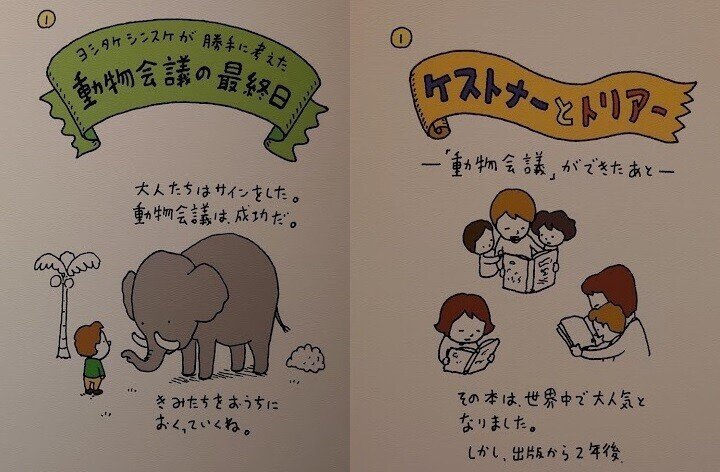 1
ヨシタケシンスケが勝手に考えた
動物会議の最終日
大人たちはサインをした。
動物会議は、成功だ。
きみたちをおうちに
おくっていくね。
1
ケストナーとトリアー
―「動物会議」ができたあと―
その本は、世界中で大人気と
なりました。
しかし、出版から2年後